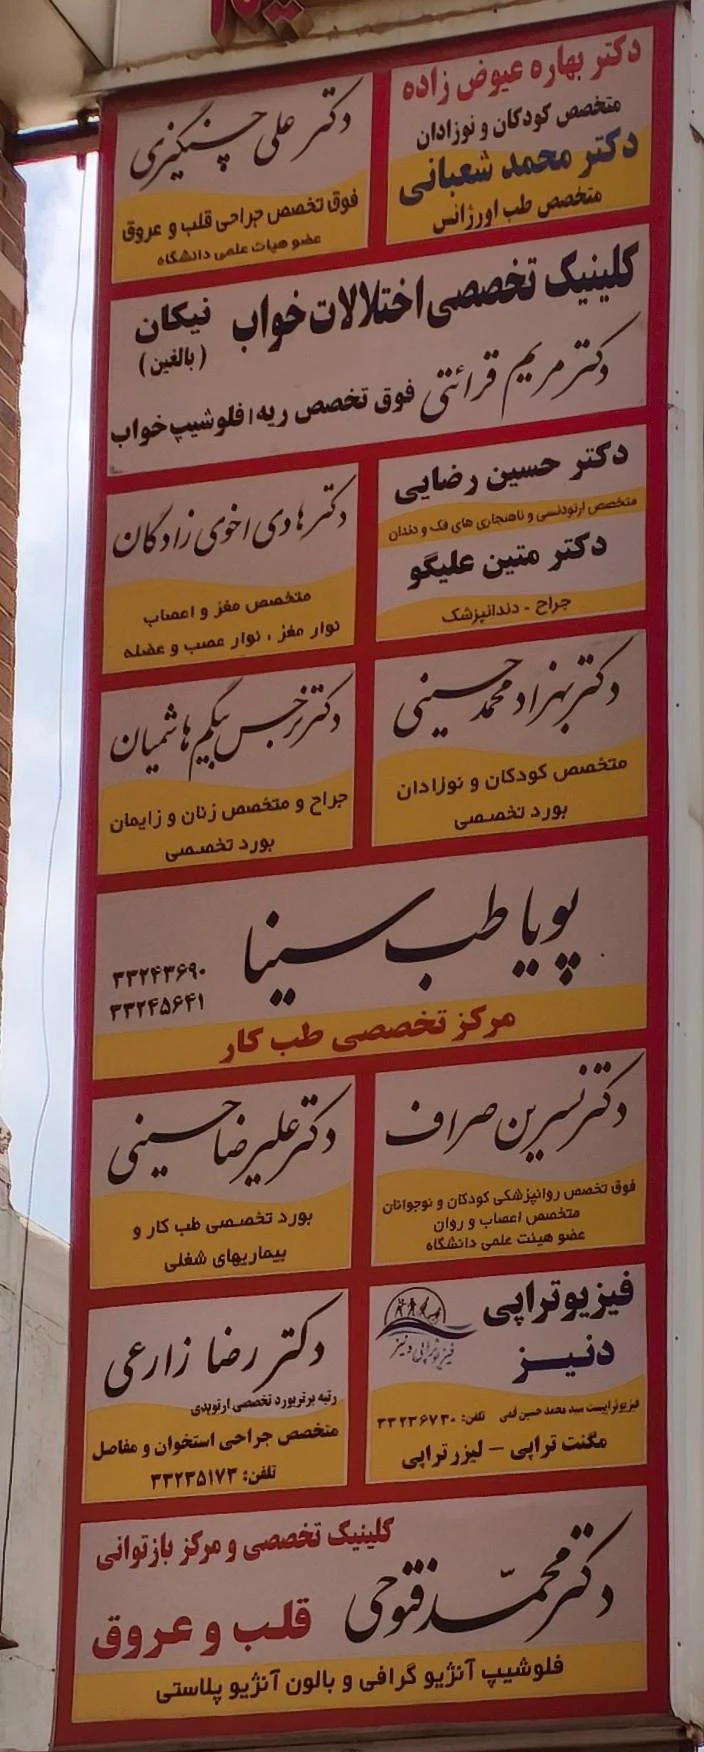 دکتر بهاره عیوض زاده
متخصص کودکان و نوزادان
دکتر محمد شعبانی
متخصص طب اورژانس
دکتر علی چنگیزی
فوق تخصص جراحی قلب و عروق
عضو هیات علمی دانشگاه
کلینیک تخصصی اختلالات خواب نیکان
(بالغین)
دکتر مریم قرائتی فوق تخصص ریه، فلوشیپ خواب
دکتر حسین رضایی
متخصص ارتودنسی و ناهنجاری های فک و دندان
دکتر متین علیگو
جراح - دندانپزشک
دکتر هادی اخوی زادگان
متخصص مغز و اعصاب
نوار مغز ، نوار عصب و عضله
دکتر بهزاد محمد حسینی
متخصص کودکان و نوزادان
بورد تخصصی
دکتر نرجس بیگم هاشمیان
جراح و متخصص زنان و زایمان
بورد تخصصی
پویا طب سینا
۳۳۲۴۳۶۹۰
۳۳۲۴۵۶۴۱
مرکز تخصصی طب کار
دکتر نسرین صراف
فوق تخصص روانپزشکی کودکان و نوجوانان
متخصص اعصاب و روان
عضو هیئت علمی دانشگاه
دکتر علیرضا حسینی
بورد تخصصی طب کار و
بیماریهای شغلی
فیزیوتراپی
دنیز
فیزیوتراپی دنیز
فیزیوتراپیست سید محمد حسین قمی تلفن: ۳۳۲۳۶۷۳۰
مگنت تراپی – لیزر تراپی
دکتر رضا زارعی
رتبه برتر بورد تخصصی ارتوپدی
متخصص جراحی استخوان و مفاصل
تلفن: ۳۳۲۳۵۱۷۳
کلینیک تخصصی و مرکز بازتوانی
دکتر محمّد فتوحی
قلب و عروق
فلوشیپ آنژیو گرافی و بالون آنژیو پلاستی